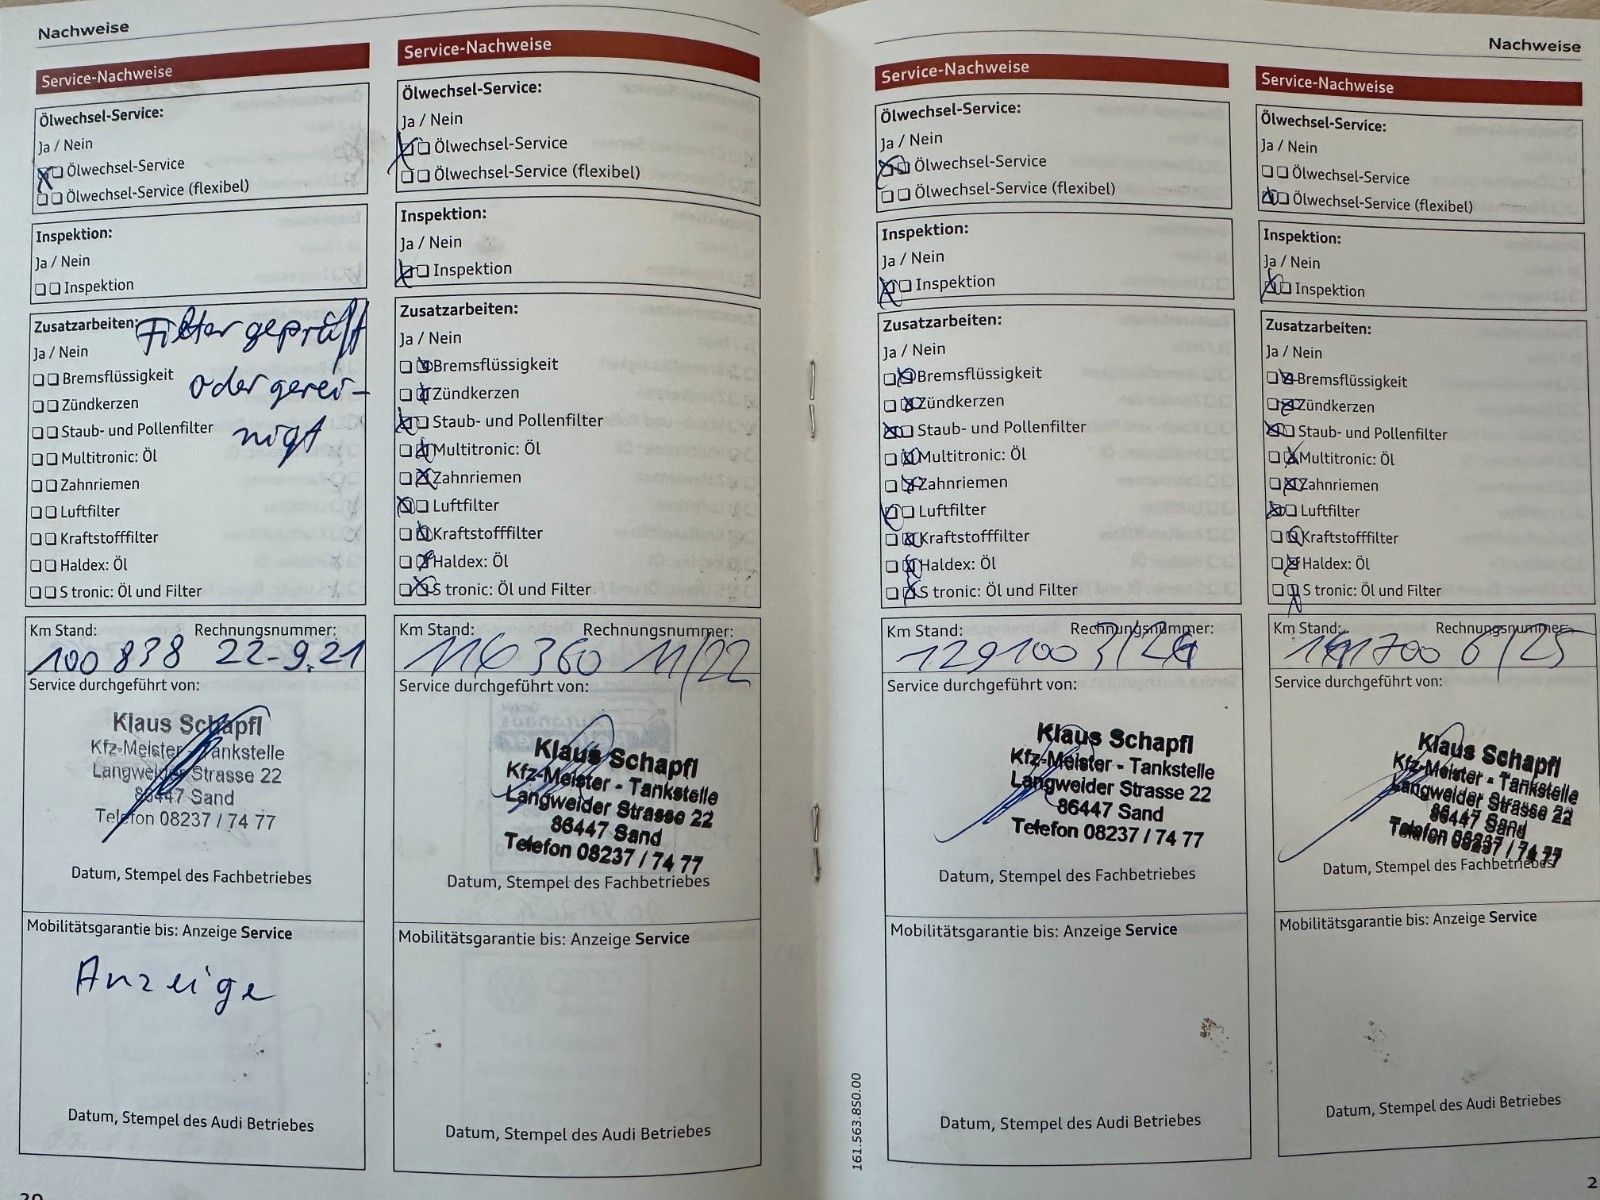 Nachweise
Service-Nachweise
Ölwechsel-Service:
Ja / Nein
Ölwechsel-Service
Ölwechsel-Service (flexibel)
Inspektion:
Ja / Nein
Inspektion
Zusatzarbeiten: Filter geprüft
Ja / Nein
oder gerei-
Bremsflüssigkeit
nigt
Zündkerzen
Staub- und Pollenfilter
Multitronic: Öl
Zahnriemen
Luftfilter
Kraftstofffilter
Haldex: Öl
S tronic: Öl und Filter
Km Stand: Rechnungsnummer:
100 838 22-9.21
Service durchgeführt von:
Klaus Schapfl
Kfz-Meister - Tankstelle
Langweider Strasse 22
86447 Sand
Telefon 08237 / 74 77
Datum, Stempel des Fachbetriebes
Mobilitätsgarantie bis: Anzeige Service
Anzeige
Datum, Stempel des Audi Betriebes
20
Service-Nachweise
Ölwechsel-Service:
Ja / Nein
Ölwechsel-Service
Ölwechsel-Service (flexibel)
Inspektion:
Ja / Nein
Inspektion
Zusatzarbeiten:
Ja / Nein
Bremsflüssigkeit
Zündkerzen
Staub- und Pollenfilter
Multitronic: Öl
Zahnriemen
Luftfilter
Kraftstofffilter
Haldex: Öl
S tronic: Öl und Filter
Km Stand: Rechnungsnummer:
116 360 11/22
Service durchgeführt von:
Klaus Schapfl
Kfz-Meister - Tankstelle
Langweider Strasse 22
86447 Sand
Telefon 08237 / 74 77
Datum, Stempel des Fachbetriebes
Mobilitätsgarantie bis: Anzeige Service
Datum, Stempel des Audi Betriebes
Nachweise
Service-Nachweise
Ölwechsel-Service:
Ja / Nein
Ölwechsel-Service
Ölwechsel-Service (flexibel)
Inspektion:
Ja / Nein
Inspektion
Zusatzarbeiten:
Ja / Nein
Bremsflüssigkeit
Zündkerzen
Staub- und Pollenfilter
Multitronic: Öl
Zahnriemen
Luftfilter
Kraftstofffilter
Haldex: Öl
S tronic: Öl und Filter
Km Stand: Rechnungsnummer:
129100 3/24
Service durchgeführt von:
Klaus Schapfl
Kfz-Meister - Tankstelle
Langweider Strasse 22
86447 Sand
Telefon 08237 / 74 77
Datum, Stempel des Fachbetriebes
Mobilitätsgarantie bis: Anzeige Service
Datum, Stempel des Audi Betriebes
161.563.850.00
Service-Nachweise
Ölwechsel-Service:
Ja / Nein
Ölwechsel-Service
Ölwechsel-Service (flexibel)
Inspektion:
Ja / Nein
Inspektion
Zusatzarbeiten:
Ja / Nein
Bremsflüssigkeit
Zündkerzen
Staub- und Pollenfilter
Multitronic: Öl
Zahnriemen
Luftfilter
Kraftstofffilter
Haldex: Öl
S tronic: Öl und Filter
Km Stand: Rechnungsnummer:
141700 6/25
Service durchgeführt von:
Klaus Schapfl
Kfz-Meister - Tankstelle
Langweider Strasse 22
86447 Sand
Telefon 08237 / 74 77
Datum, Stempel des Fachbetriebes
Mobilitätsgarantie bis: Anzeige Service
Datum, Stempel des Audi Betriebes
2